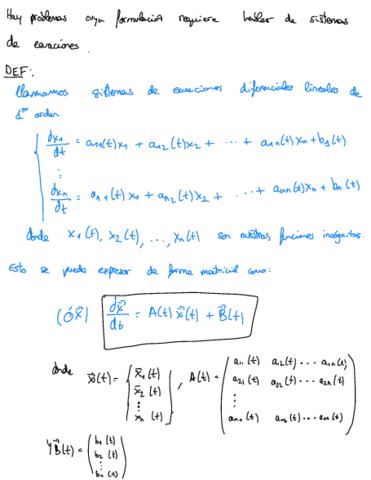 Hay problemas cuya formulación requiere hablar de sistemas
de ecuaciones.
DEF:
llamamos sistemas de ecuaciones diferenciales lineales de
1er orden
{ dx₁/dt = a₁₁(t)x₁ + a₁₂(t)x₂ + ⋯ + a₁ₙ(t)xₙ + b₁(t)
⋮
dxₙ/dt = aₙ₁(t)x₁ + aₙ₂(t)x₂ + ⋯ + aₙₙ(t)xₙ + bₙ(t)
donde x₁(t), x₂(t), ..., xₙ(t) son nuestras funciones incógnitas.
Esto se puede expresar de forma matricial como:
(óx⃗) dx⃗/dt = A(t) x⃗(t) + B⃗(t)
donde x⃗(t) = (x̄₁(t) x̄₂(t) ⋮ xₙ(t)), A(t) = (a₁₁(t) a₁₂(t) ... a₁ₙ(t) a₂₁(t) a₂₂(t) ... a₂ₙ(t) ⋮ aₙ₁(t) aₙ₂(t) ... aₙₙ(t))
Y B⃗(t) = (b₁(t) b₂(t) ⋮ bₙ(t))